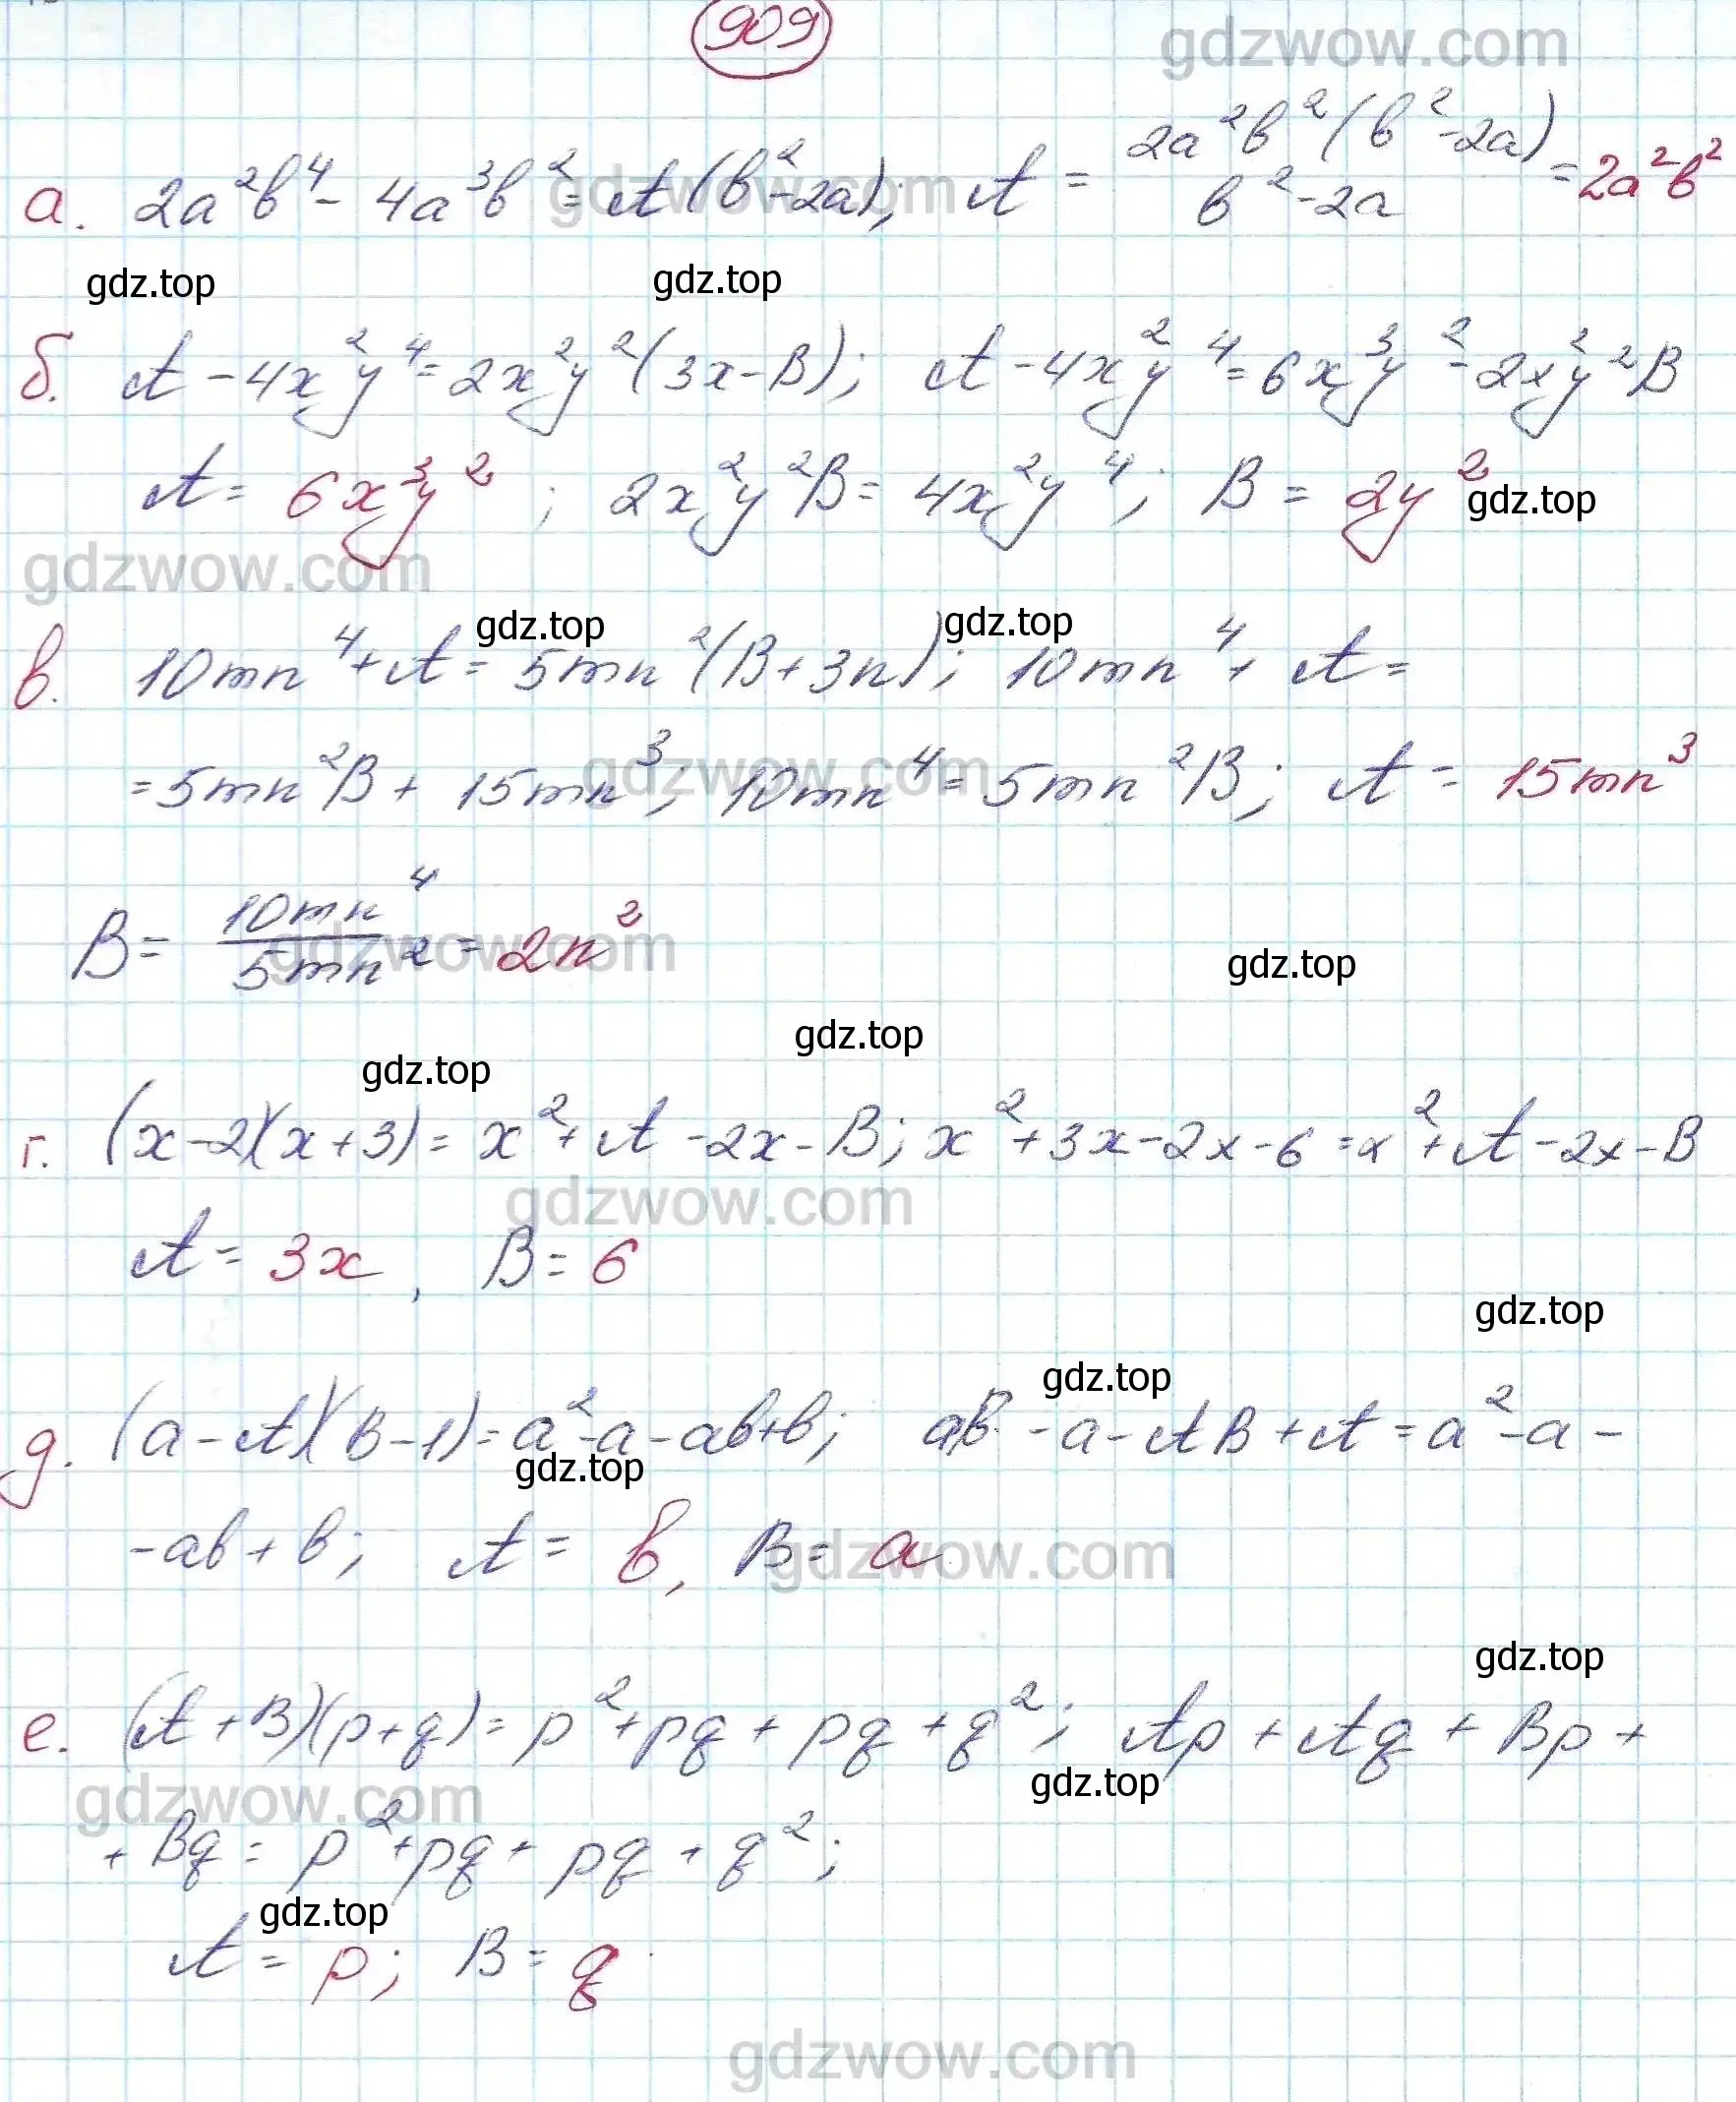 909
gdzwow.com
а. 2a²b⁴ - 4a³b² = A(b² - 2a); A = 2a²b²(b² - 2a) / b² - 2a = 2a²b²
gdzwow.com
gdz.top gdz.top
б. A - 4x²y⁴ = 2x²y²(3x - B); A - 4x²y⁴ = 6x³y² - 2x²y²B
A = 6x³y²; 2x²y²B = 4x²y⁴; B = 2y²
gdz.top
gdzwow.com
gdz.top gdz.top
в. 10mn⁴ + A = 5mn²(B + 3n); 10mn⁴ + A =
= 5mn²B + 15mn³; 10mn⁴ = 5mn²B; A = 15mn³
gdzwow.com
B = 10mn⁴ / 5mn² = 2n²
gdzwow.com
gdz.top
gdz.top
gdz.top
г. (x - 2)(x + 3) = x² + A - 2x - B; x² + 3x - 2x - 6 = x² + A - 2x - B
gdzwow.com
A = 3x, B = 6
gdz.top
gdz.top
д. (a - A)(B - 1) = a² - a - ab + b; aB - a - AB + A = a² - a -
gdz.top
- ab + b; A = b, B = a
gdzwow.com
gdz.top
е. (A + B)(p + q) = p² + pq + pq + q²; Ap + Aq + Bp +
gdz.top
gdzwow.com
+ Bq = p² + pq + pq + q²;
gdz.top
A = p; B = q
gdzwow.com